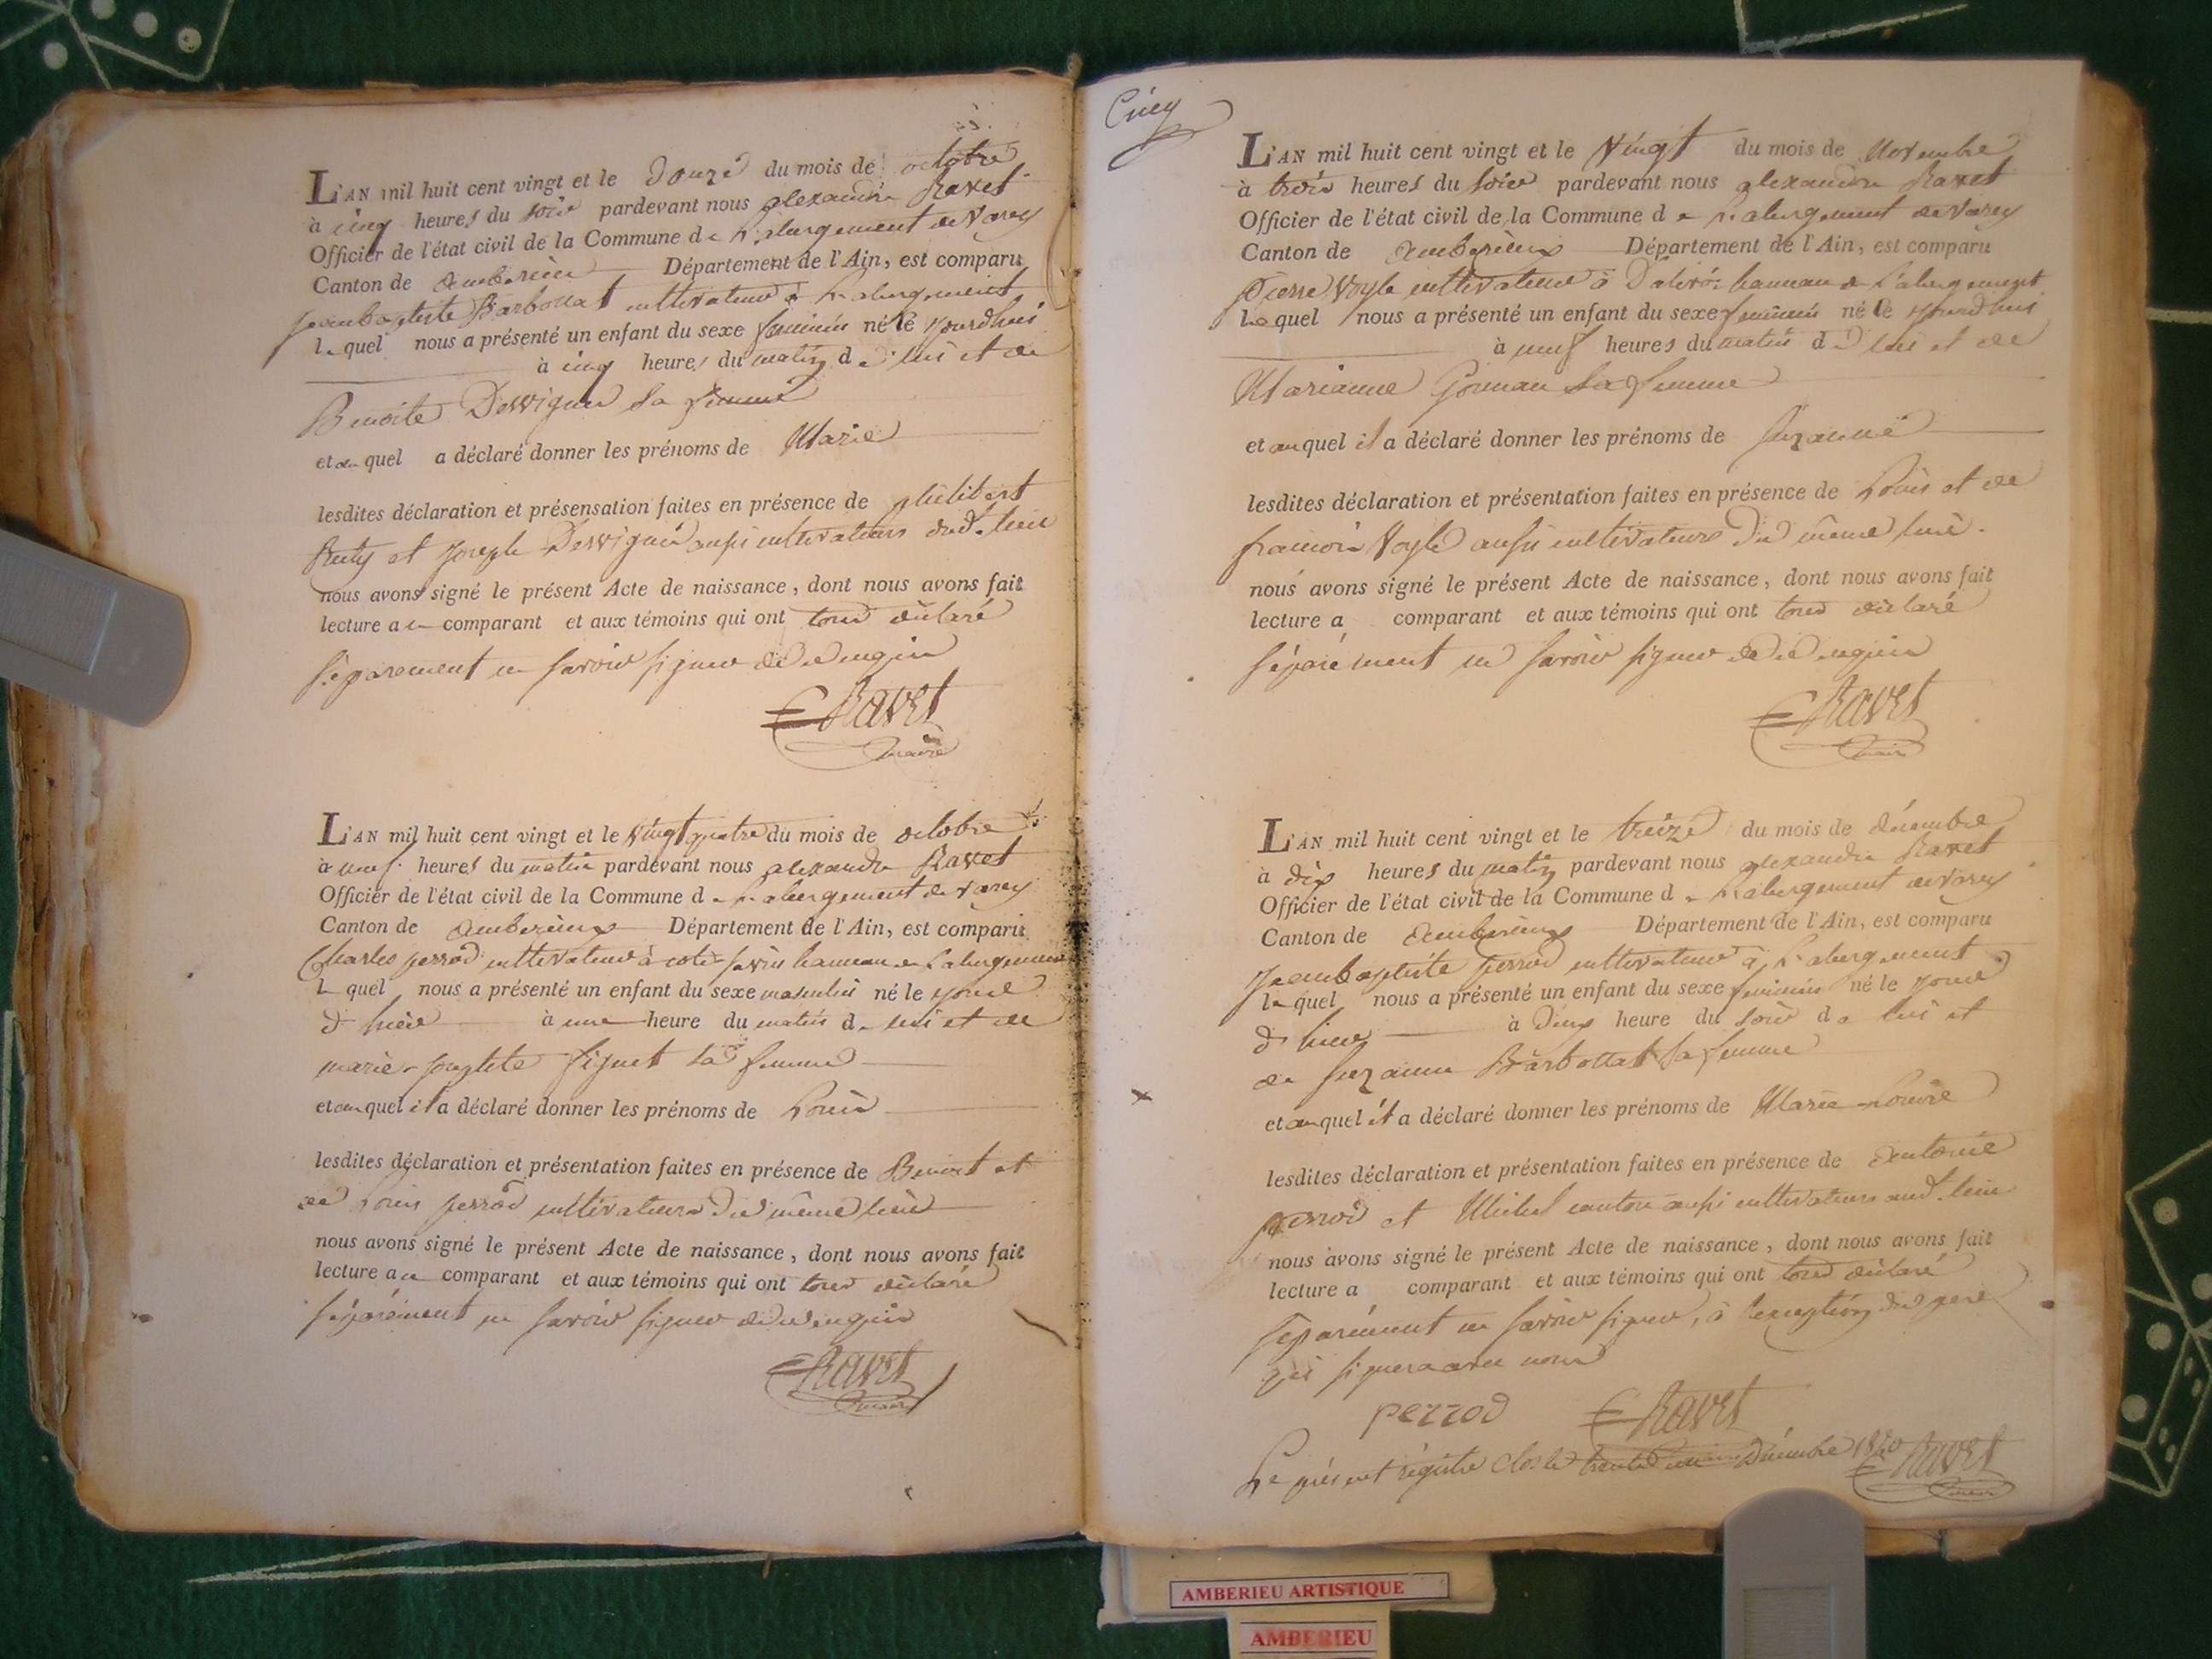 L'AN mil huit cent vingt et le Douze du mois de octobre
à cinq heures du soir pardevant nous alexandre Ravet
Officier de l'état civil de la Commune de L'abergement de varey
Canton de Amberieu Département de l'Ain, est comparu
jeanbaptiste Barbollat cultivateur à L'abergement
lequel nous a présenté un enfant du sexe feminin né le jourdhui
à cinq heures du matin de lui et de
Benoite Desvigne sa femme
et auquel a déclaré donner les prénoms de Marie
lesdites déclaration et présensation faites en présence de philibert
et joseph Desvigne aussi cultivateurs dud. lieu
nous avons signé le présent Acte de naissance, dont nous avons fait
lecture au comparant et aux témoins qui ont tous déclaré
séparement ne savoir signer de ce enquis
Ravet
maire
L'AN mil huit cent vingt et le vingt quatre du mois de octobre
à neuf heures du matin pardevant nous alexandre Ravet
Officier de l'état civil de la Commune de L'abergement de varey
Canton de Amberieux Département de l'Ain, est comparu
Charles perrod cultivateur à coté savin hameau de L'abergement
lequel nous a présenté un enfant du sexe masculin né le jour
d'hier à une heure du matin de lui et de
marie josephte sa femme
et auquel il a déclaré donner les prénoms de Louis
lesdites déclaration et présentation faites en présence de Benoit et
de Louis perrod cultivateurs du même lieu
nous avons signé le présent Acte de naissance, dont nous avons fait
lecture au comparant et aux témoins qui ont tous déclaré
séparément ne savoir signer de ce enquis
Ravet
maire
Cinq
L'AN mil huit cent vingt et le vingt du mois de Novembre
à trois heures du soir pardevant nous alexandre Ravet
Officier de l'état civil de la Commune de L'abergement de varey
Canton de Amberieux Département de l'Ain, est comparu
pierre Voyle cultivateur à hameau de L'abergement
lequel nous a présenté un enfant du sexe feminin né le jourdhui
à neuf heures du matin de lui et de
Marianne sa femme
et auquel il a déclaré donner les prénoms de suzanne
lesdites déclaration et présentation faites en présence de Louis et de
francois Voyle aussi cultivateurs du même lieu.
nous avons signé le présent Acte de naissance, dont nous avons fait
lecture a comparant et aux témoins qui ont tous déclaré
séparément ne savoir signer de ce enquis
Ravet
maire
L'AN mil huit cent vingt et le treize du mois de décembre
à dix heures du matin pardevant nous alexandre Ravet
Officier de l'état civil de la Commune de L'abergement de varey
Canton de Amberieux Département de l'Ain, est comparu
jeanbaptiste perrod cultivateur à L'abergement
lequel nous a présenté un enfant du sexe feminin né le jour
d'hier à deux heure du soir de lui et
de suzanne Barbollat sa femme
et auquel il a déclaré donner les prénoms de Marie Louise
lesdites déclaration et présentation faites en présence de Antoine
perrod et Michel aussi cultivateurs aud. lieu
nous avons signé le présent Acte de naissance, dont nous avons fait
lecture a comparant et aux témoins qui ont tous déclaré
séparément ne savoir signer, à l'exception du pere
qui signera avec nous
perrod Ravet
Le présent régistre clos le trente un Décembre 1820 Ravet
maire
AMBERIEU ARTISTIQUE
AMBERIEU